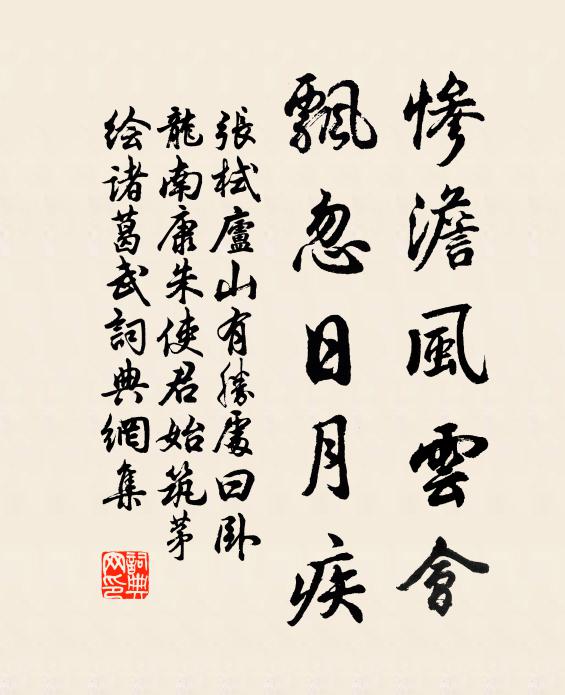 慘澹風雲會
飄忽日月疾
張栻廬山有勝處曰卧
龍南康朱使君始筑茅
绘诸葛武詞典網集
詞典网印